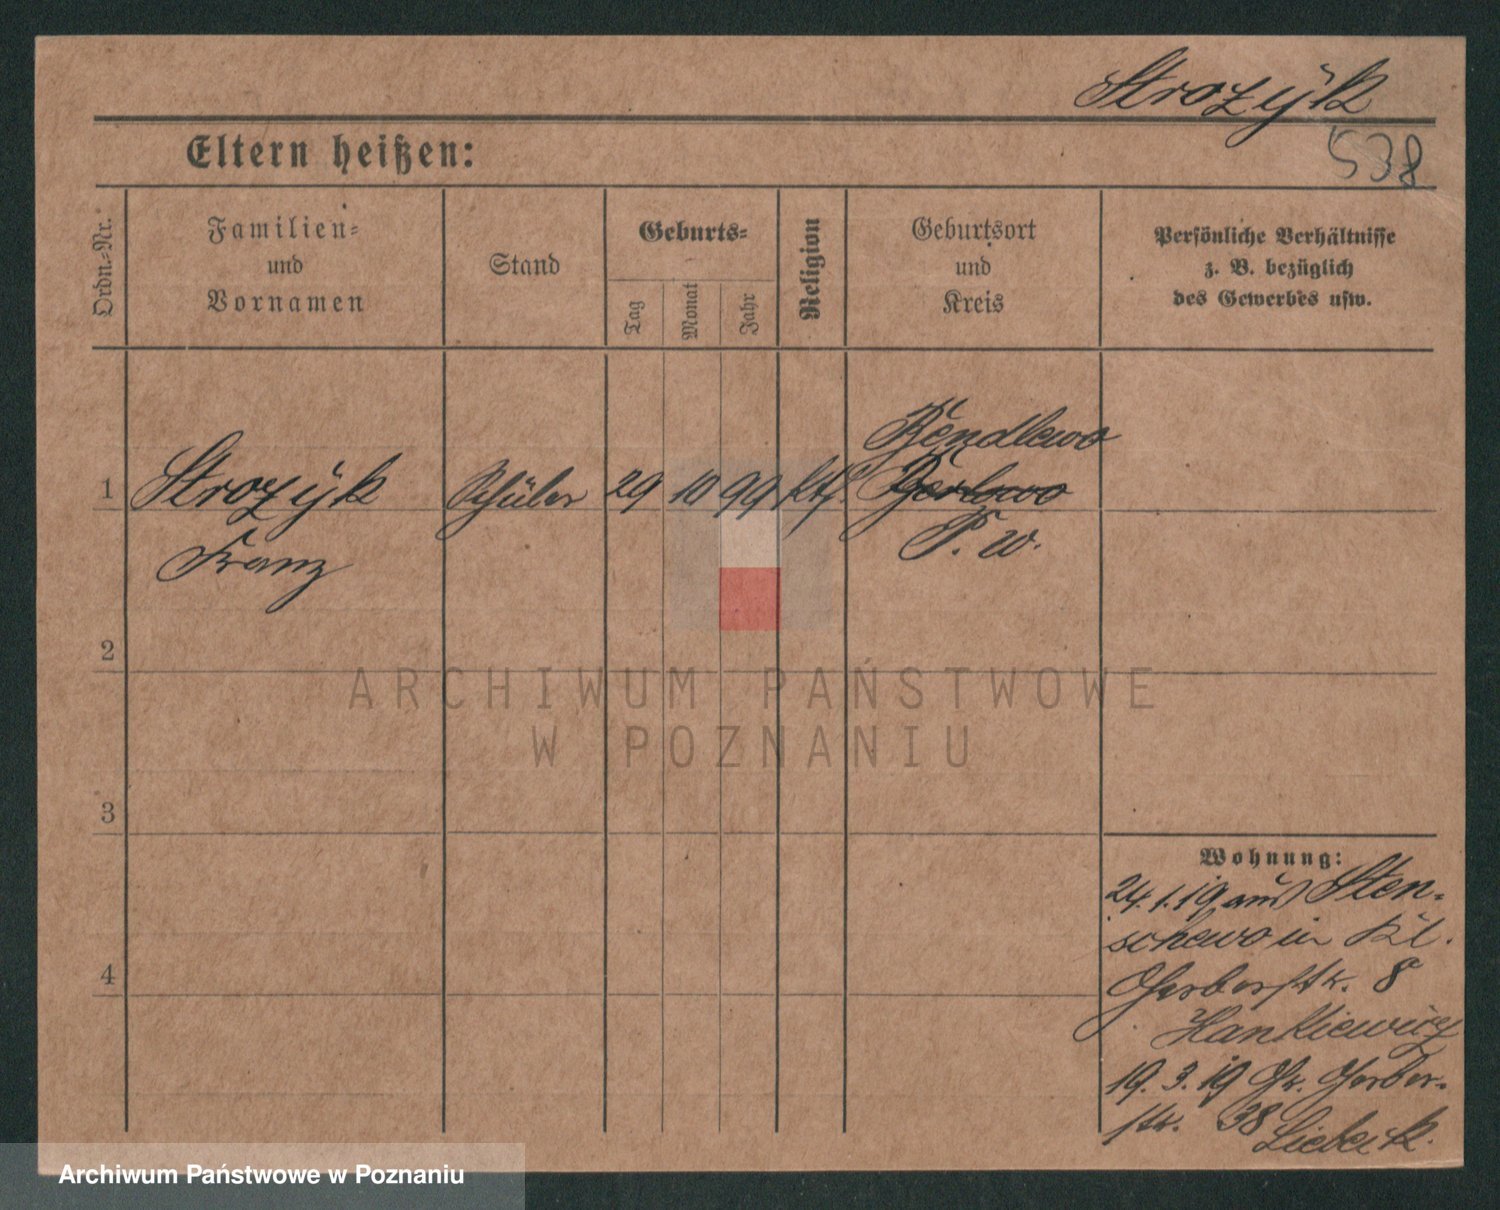 Strozyk
538
Eltern heißen:
Ordn.-Nr.
Familien-
und
Vornamen
Stand
Geburts-
Tag
Monat
Jahr
Religion
Geburtsort
und
Kreis
Persönliche Verhältnisse
z. B. bezüglich
des Gewerbes usw.
1
Strozyk
Franz
Schüler
29
10
99
kth.
Bendlewo
P. W.
2
3
4
ARCHIWUM PAŃSTWOWE
W POZNANIU
Wohnung:
24.1.19 aus Sten-
schewo in Kl.
Gerberstr. 8
Hankiewicz
19.3.19 Gr. Gerber-
str. 38
Archiwum Państwowe w Poznaniu